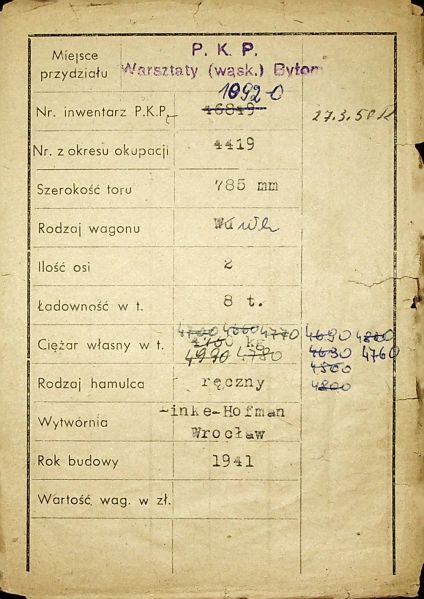 Miejsce przydziału
P. K. P.
Warsztaty (wąsk.) Bytom
10920
Nr. inwentarz P.K.P. 46849 27.3.50
Nr. z okresu okupacji 4419
Szerokość toru 785 mm
Rodzaj wagonu Wh
Ilość osi 2
Ładowność w t. 8 t.
4700 4660 4770 4690 4800
Ciężar własny w t. kg
4990 4780 4630 4760
4800
4800
Rodzaj hamulca ręczny
Wytwórnia -inke-Hofman
Wrocław
Rok budowy 1941
Wartość wag. w zł.